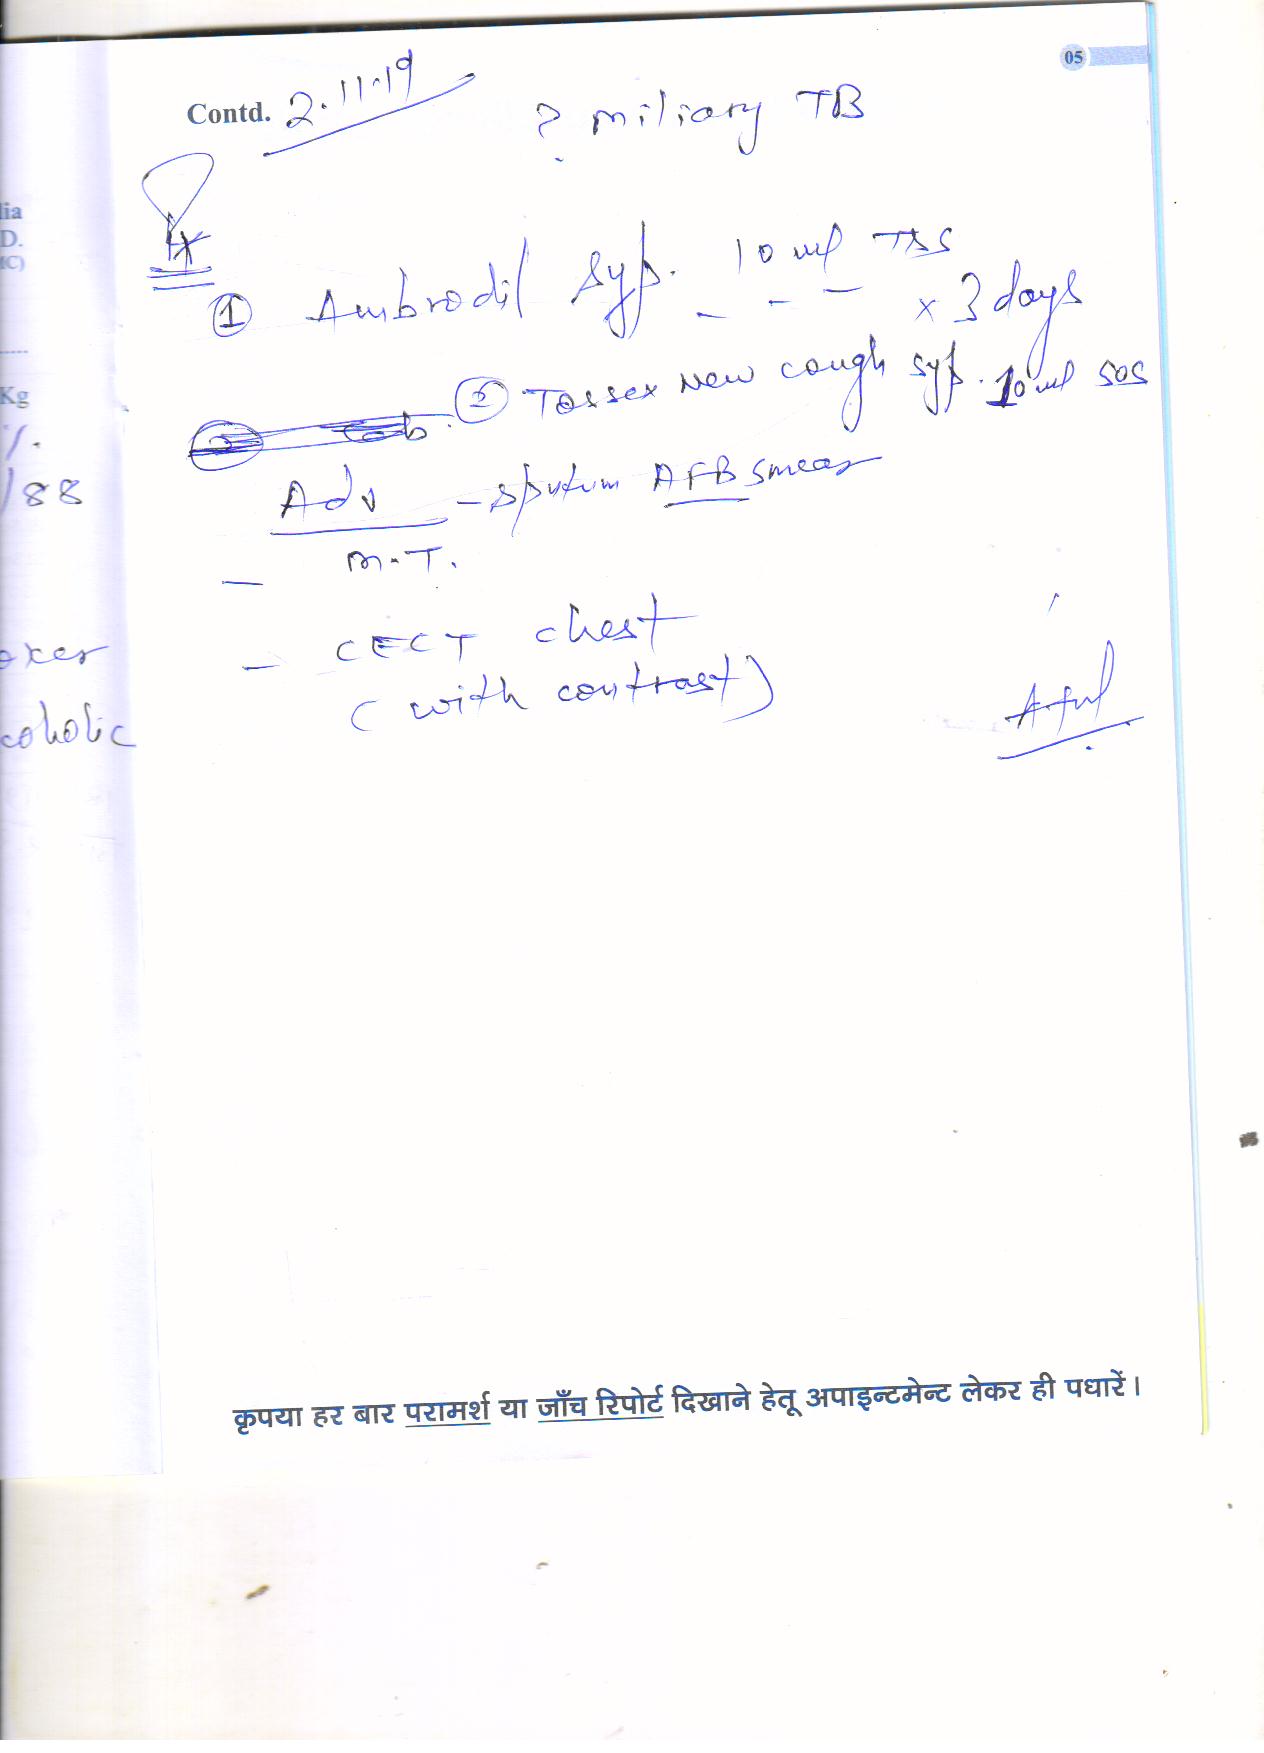 05
Contd. 2.11.19
? miliary TB
Rx
① Ambrodil Syp. 10 ml TDS
_ _ _ x 3 days
② Tossex New cough syp. 10 ml SOS
Adv - Sputum AFB smear
- M.T.
- CECT chest
(with contrast)
lia
D.
IC)
Kg
/88
oker
coholic
कृपया हर बार परामर्श या जाँच रिपोर्ट दिखाने हेतू अपाइन्टमेन्ट लेकर ही पधारें।